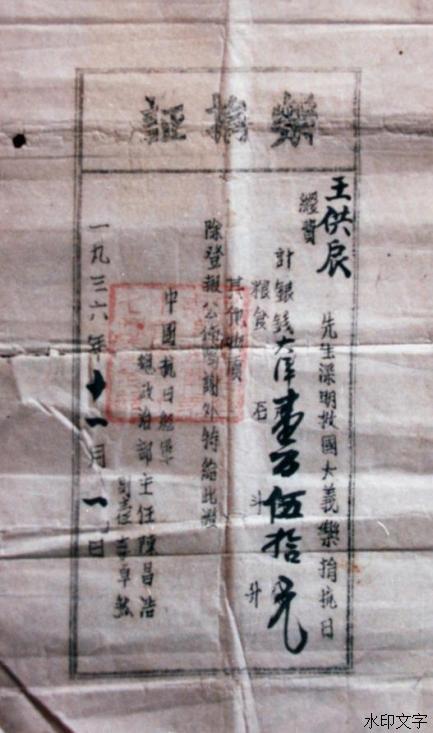 樂捐証
王供辰 先生深明救國大義樂捐抗日
經費
計銀錢大洋壹百伍拾元
粮食 石 斗 升
其他物項
除登報公佈鳴謝外特給此
中國抗日紅軍
總政治部主任陳昌浩
副主任李卓然
一九三六年十一月一日
水印文字